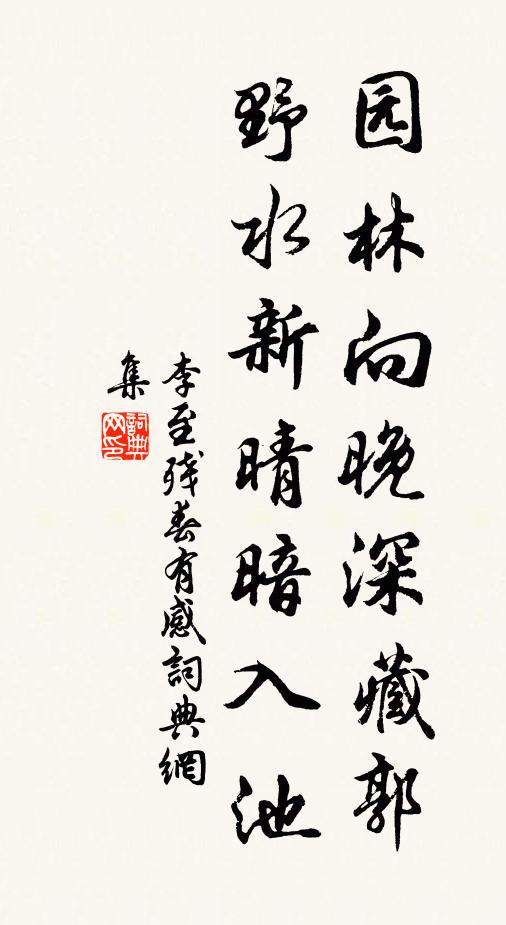 园林向晚深藏郭
野水新晴暗入池
李至残春有感詞典網
集
詞典网印